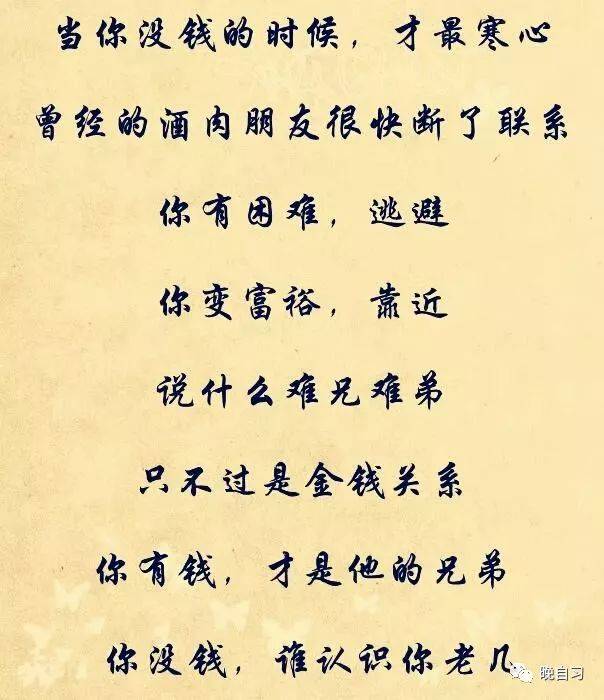 当你没钱的时候，才最寒心
曾经的酒肉朋友很快断了联系
你有困难，逃避
你变富裕，靠近
说什么难兄难弟
只不过是金钱关系
你有钱，才是他的兄弟
你没钱，谁认识你老几
晚自习